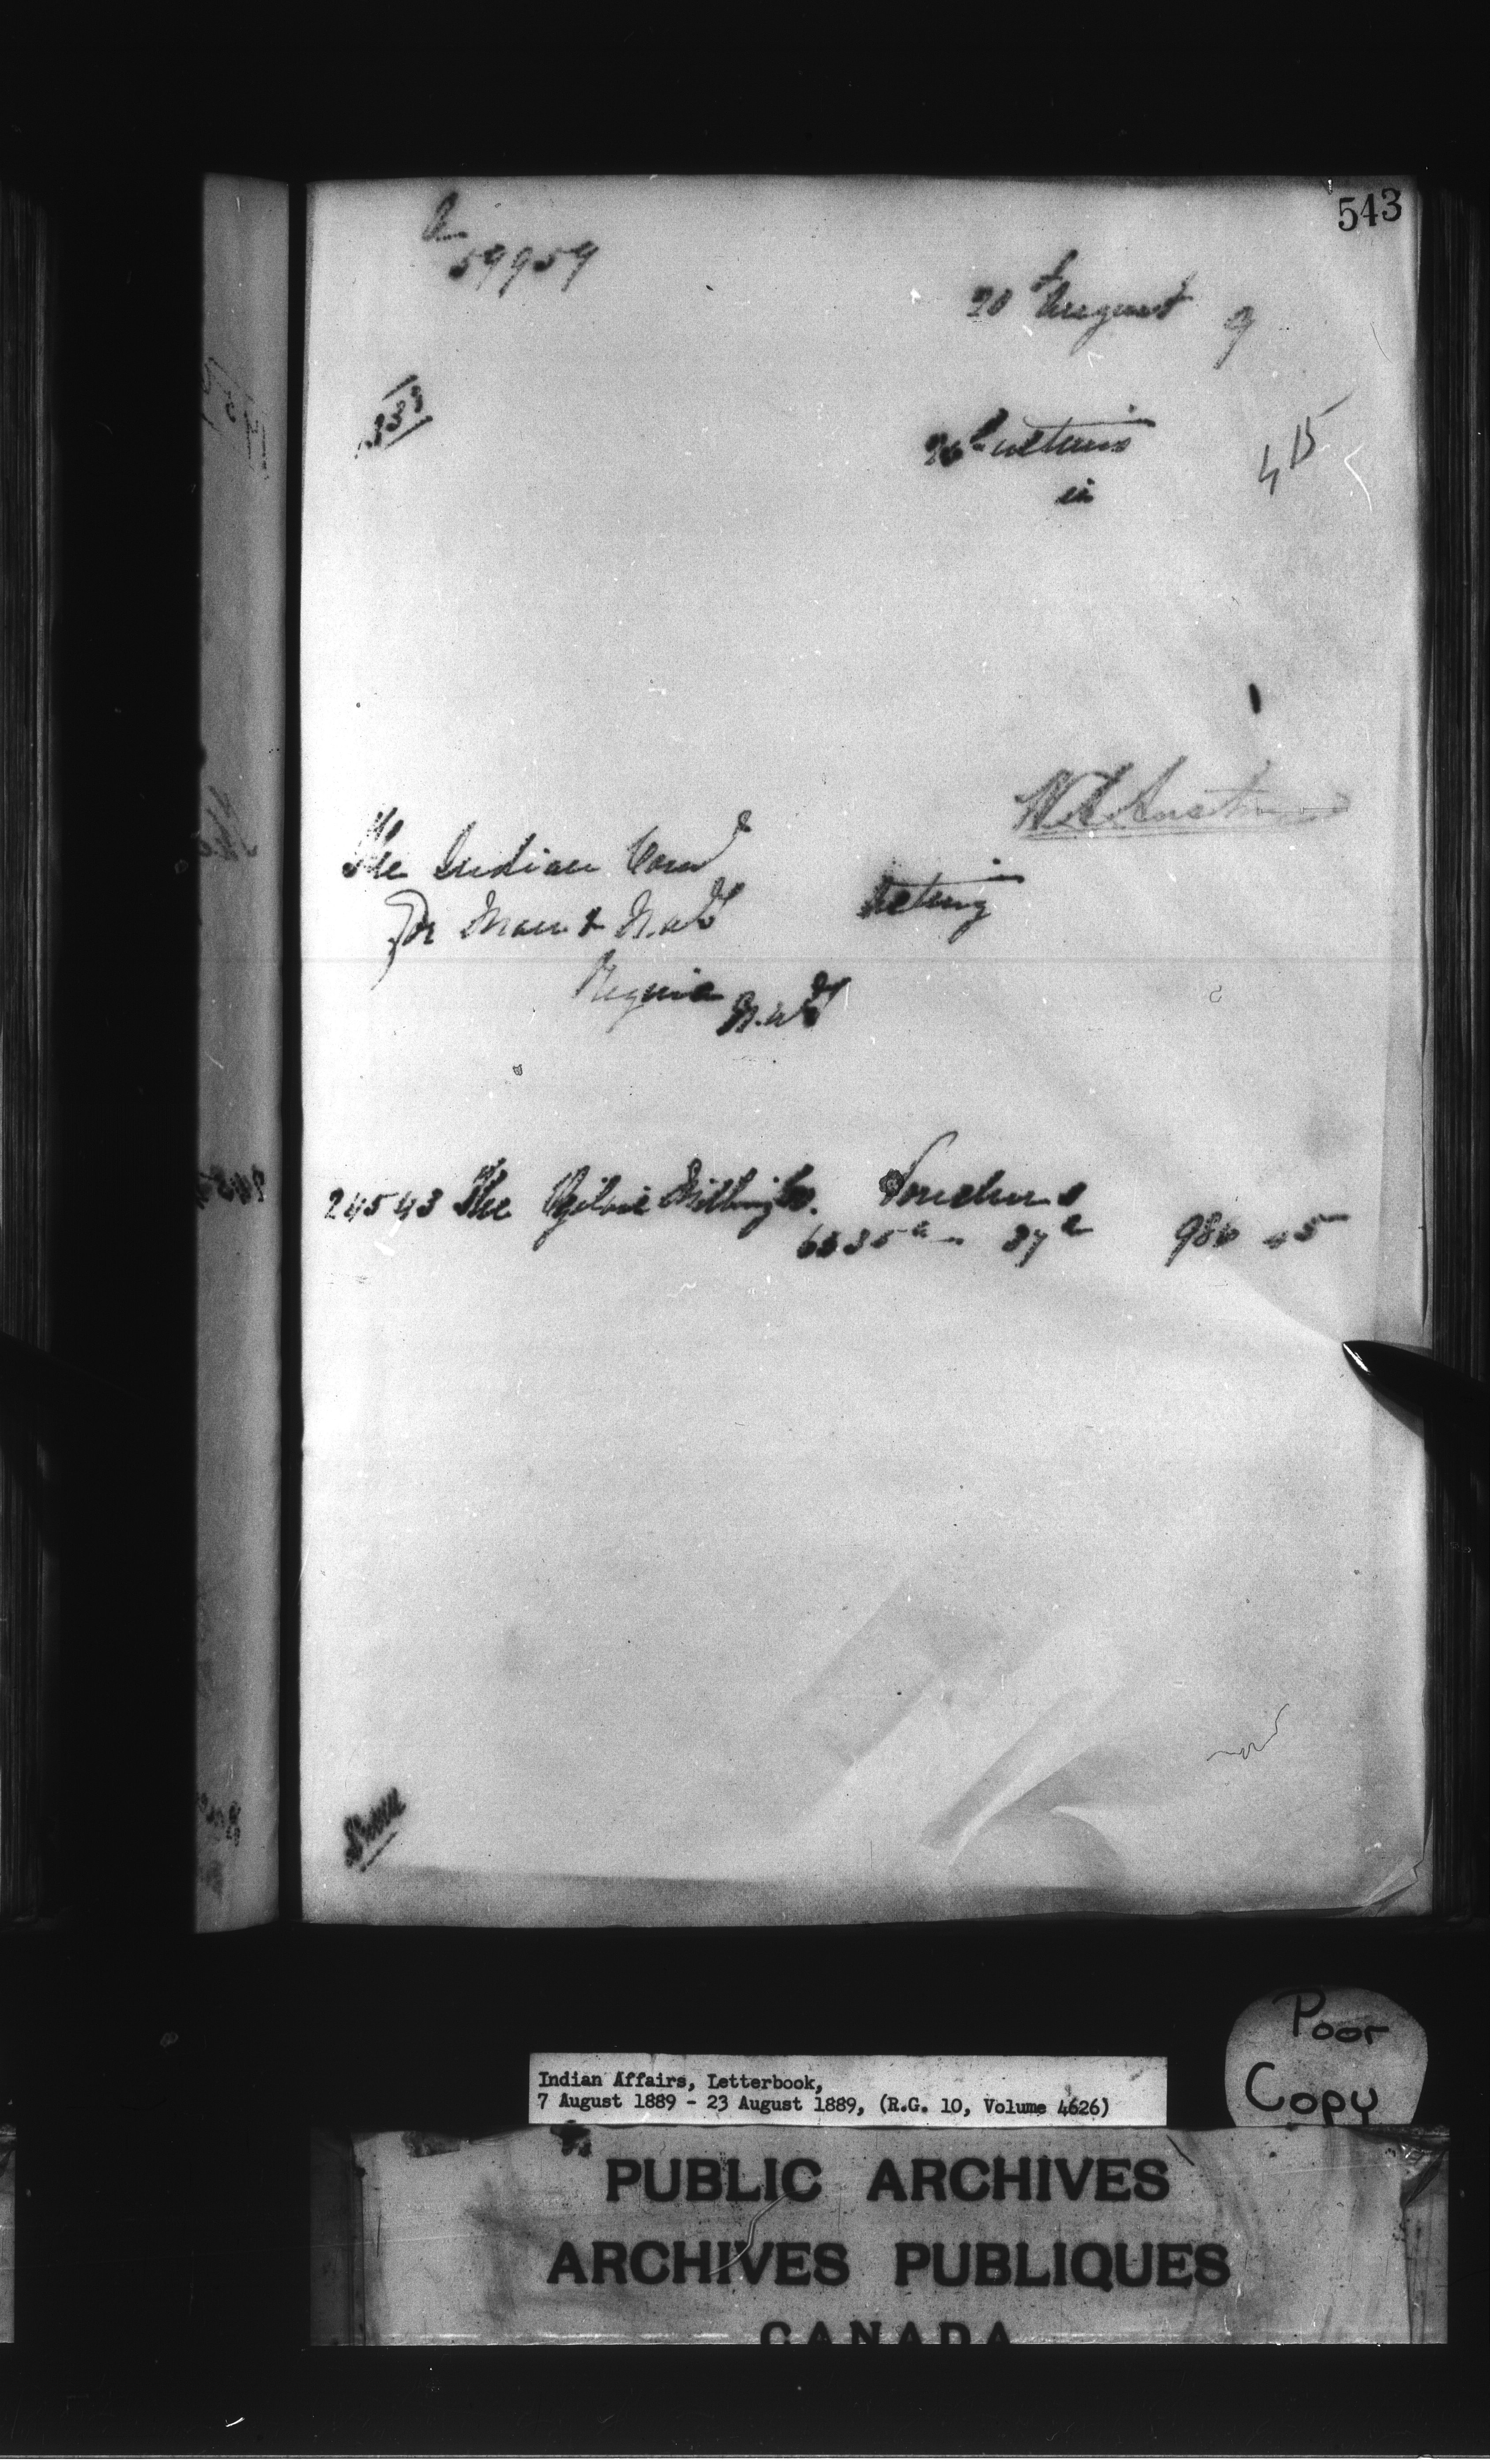 543
59959
20th August 9
333
in
45
W.A. Austin
The Indian Comr
for Man & N.W.T
Acting
Regina N.W.T
24543 The Ogilvie Milling Co. Vouchers
6535a - 37a 986 45
Poor
Copy
Indian Affairs, Letterbook,
7 August 1889 - 23 August 1889, (R.G. 10, Volume 4626)
PUBLIC ARCHIVES
ARCHIVES PUBLIQUES
CANADA